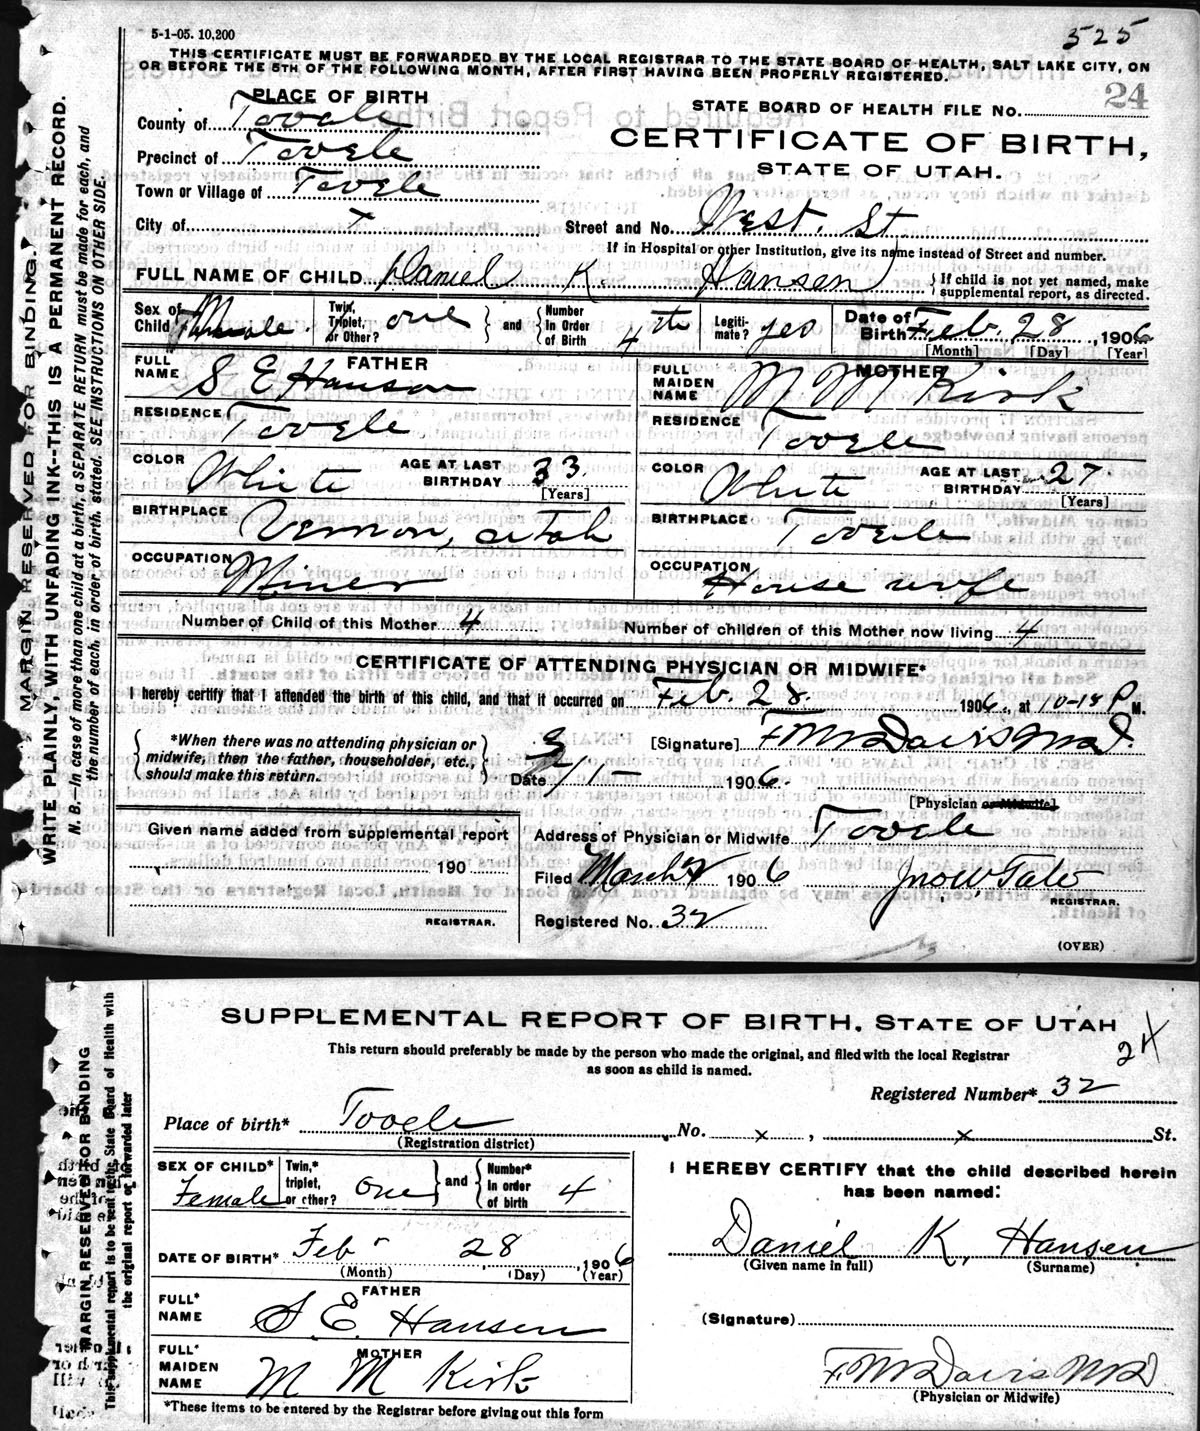 5-1-05. 10,200
525
THIS CERTIFICATE MUST BE FORWARDED BY THE LOCAL REGISTRAR TO THE STATE BOARD OF HEALTH, SALT LAKE CITY, ON
OR BEFORE THE 5TH OF THE FOLLOWING MONTH, AFTER FIRST HAVING BEEN PROPERLY REGISTERED.
24
PLACE OF BIRTH
STATE BOARD OF HEALTH FILE No.
County of Tooele
CERTIFICATE OF BIRTH,
Precinct of Tooele
STATE OF UTAH.
Town or Village of Tooele
City of x
Street and No. West. St
If in Hospital or other Institution, give its name instead of Street and number.
FULL NAME OF CHILD Daniel K. Hansen
If child is not yet named, make
supplemental report, as directed.
Sex of Child male.
Twin, Triplet, or Other? one
and
Number In Order of Birth 4th
Legitimate? yes
Date of Birth Feb. 28, 1906
[Month] [Day] [Year]
FATHER
FULL NAME S E Hansen
RESIDENCE Tooele
COLOR White
AGE AT LAST BIRTHDAY 33
[Years]
BIRTHPLACE Vernon, Utah
OCCUPATION Miner
MOTHER
FULL MAIDEN NAME M M Kirk
RESIDENCE Tooele
COLOR White
AGE AT LAST BIRTHDAY 27
[Years]
BIRTHPLACE Tooele
OCCUPATION House wife
Number of Child of this Mother 4
Number of children of this Mother now living 4
CERTIFICATE OF ATTENDING PHYSICIAN OR MIDWIFE*
I hereby certify that I attended the birth of this child, and that it occurred on Feb. 28. 1906, at 10-15 P M.
*When there was no attending physician or
midwife, then the father, householder, etc.,
should make this return.
[Signature] F M Davis M.D.
Date 3/1- 1906.
[Physician or Midwife]
Given name added from supplemental report
190
REGISTRAR.
Address of Physician or Midwife Tooele
Filed March 1906
Jno W. Tate
REGISTRAR.
Registered No. 32
(OVER)
MARGIN RESERVED FOR BINDING.
WRITE PLAINLY, WITH UNFADING INK--THIS IS A PERMANENT RECORD.
N. B.—In case of more than one child at a birth, a SEPARATE RETURN must be made for each, and
the number of each, in order of birth, stated. SEE INSTRUCTIONS ON OTHER SIDE.
SUPPLEMENTAL REPORT OF BIRTH, STATE OF UTAH
24
This return should preferably be made by the person who made the original, and filed with the local Registrar
as soon as child is named.
Registered Number* 32
Place of birth* Tooele No. x, x St.
(Registration district)
SEX OF CHILD* Female
Twin,* triplet, or other? One
and
Number* in order of birth 4
DATE OF BIRTH* Feb 28, 1906
(Month) (Day) (Year)
FATHER
FULL* NAME S. E. Hansen
MOTHER
FULL* MAIDEN NAME M M Kirk
*These items to be entered by the Registrar before giving out this form
I HEREBY CERTIFY that the child described herein
has been named:
Daniel K. Hansen
(Given name in full) (Surname)
(Signature)
F. M. Davis MD
(Physician or Midwife)
MARGIN RESERVED FOR BINDING
This supplemental report is to be sent to the State Board of Health with
the original report or forwarded later